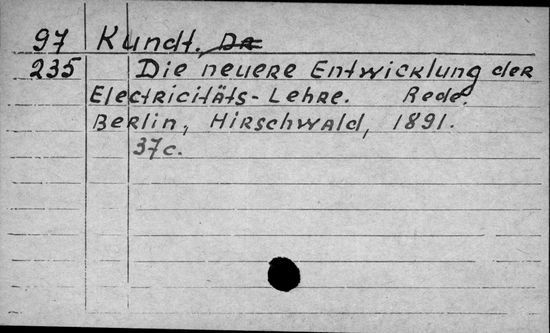 97 Kundt, Dr
235 Die neuere Entwicklung der
Electricitäts-Lehre. Rede.
Berlin, Hirschwald, 1891.
37c.